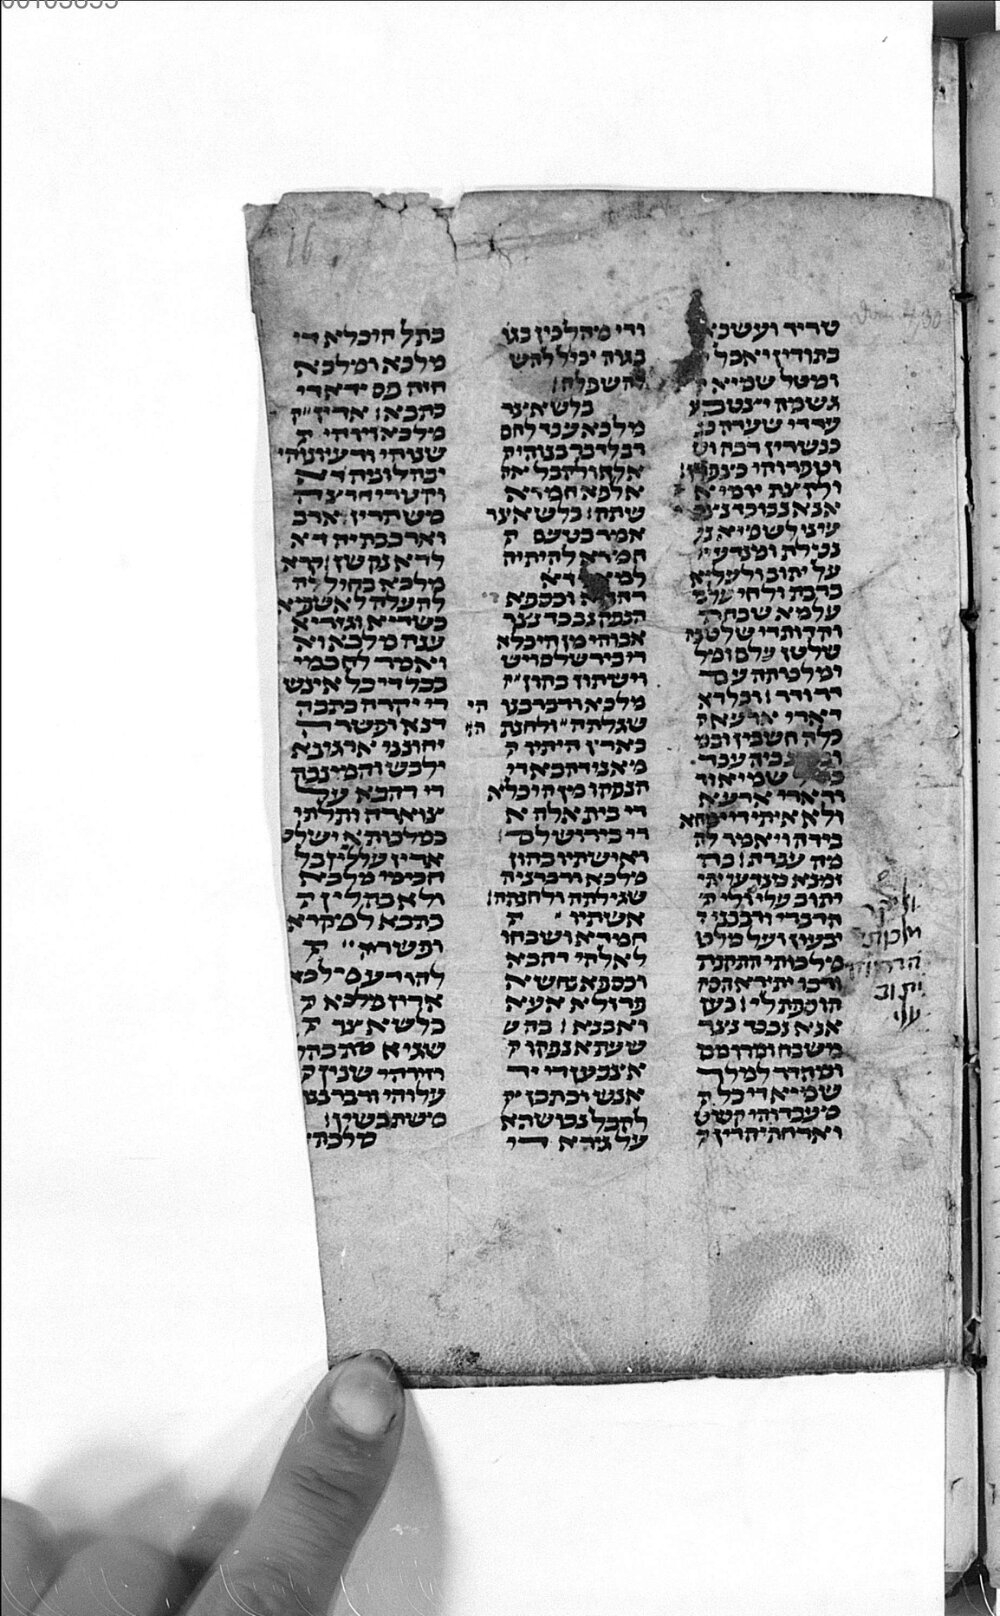 טריד ועשבא
כתורין יאכל
ומטל שמיא
גשמה יצטבע
ערדי שערה כנ
כנשרין רבה וט
וטפרוהי כצפרין
ולקצת יומיא
אנא נבוכדנצר
עיני לשמיא נט
נטילת ומנדעי
עלי יתוב ולעליא
ברכת ולחי עלמ
עלמא שבחת
והדרת די שלטנה
שלטן עלם ומל
ומלכותה עם
דר ודר וכלדא
דארי ארעא
כלה חשבין וכמ
וכמצביה עבד
בחיל שמיא וד
ודארי ארעא
ולא איתי די ימחא
בידה ויאמר לה
מה עבדת בה
זמנא מנדעי ית
יתוב עלי ולי
הדברי ורברבני
יבעון ועל מלכ
מלכותי התקנת
ורבו יתירה הוס
הוספת לי כען
אנא נבכדנצר
משבח ומרומם
ומהדר למלך
שמיא די כל
מעבדוהי קשוט
וארחתה דין
וליקר
מלכותי
הדרי וזוי
יתוב
עלי
ודי מהלכין בגו
בגוה יכיל להש
להשפלה
בלשאצר
מלכא עבד לחם
רב לרברבנוהי
אלף ולקבל א
אלפא חמרא
שתה בלשאצר
אמר בטעם
חמרא להיתיה
למאני דא
דהבא וכספא
הנפק נבכדנצר
אבוהי מן היכלא
די בירושלם ויש
וישתון בהון
מלכא ורברבנו הי
שגלתה ולחנת ה
באדין היתיו
מאני דהבא די
הנפקו מן היכלא
די בית אלהא
די בירושלם
ואישתיו בהון
מלכא ורברבניה
שגלתה ולחנתה
אשתיו
חמרא ושבחו
לאלהי דהבא
וכספא נחשא
פרזלא אעא
ואבנא בה ש
שעתא נפקו
אצבען די יד
אנש וכתבן
לקבל נברשתא
על גירא די
כתל היכלא די
מלכא ומלכא
חזה פס ידא די
כתבא אדין
מלכא זיוהי
שנוהי ורעיונוהי
יבהלונה
וקטרי חרצה
משתרין וארכ
וארכבתה דא
לדא נקשן קרא
מלכא בחיל לה
להעלה לאשפיא
כשדיא וגזריא
ענה מלכא וא
ואמר לחכימי
בבל די כל אינש
די יקרה כתבה
דנא ופשרה
יחונני ארגונא
ילבש והמינכה
די דהבא על
צוארה ותלתי
במלכותא ישלט
אדין עללין כל
חכימי מלכא
ולא כהלין
כתבא למקרא
ופשרא
להודעה למלכא
אדין מלכא
בלשאצר
שגיא מתבהל
וזיוהי שנין
עלוהי ורברבנ
משתבשין
מלכתא